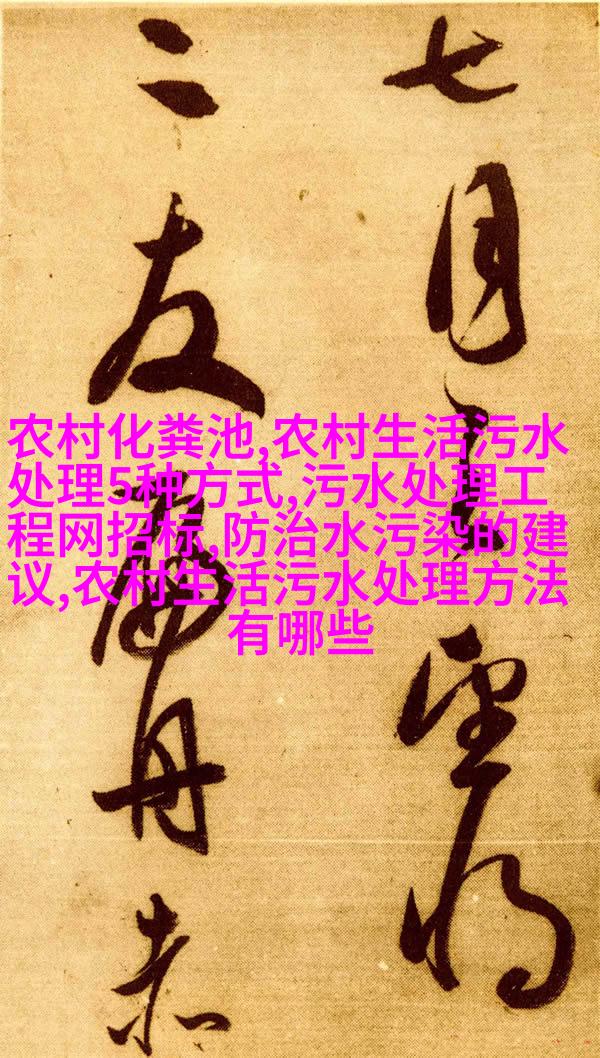 七月望将
二友舟赤
农村化粪池,农村生活污水
处理5种方式,污水处理工
程网招标,防治水污染的建
议,农村生活污水处理方法
有哪些